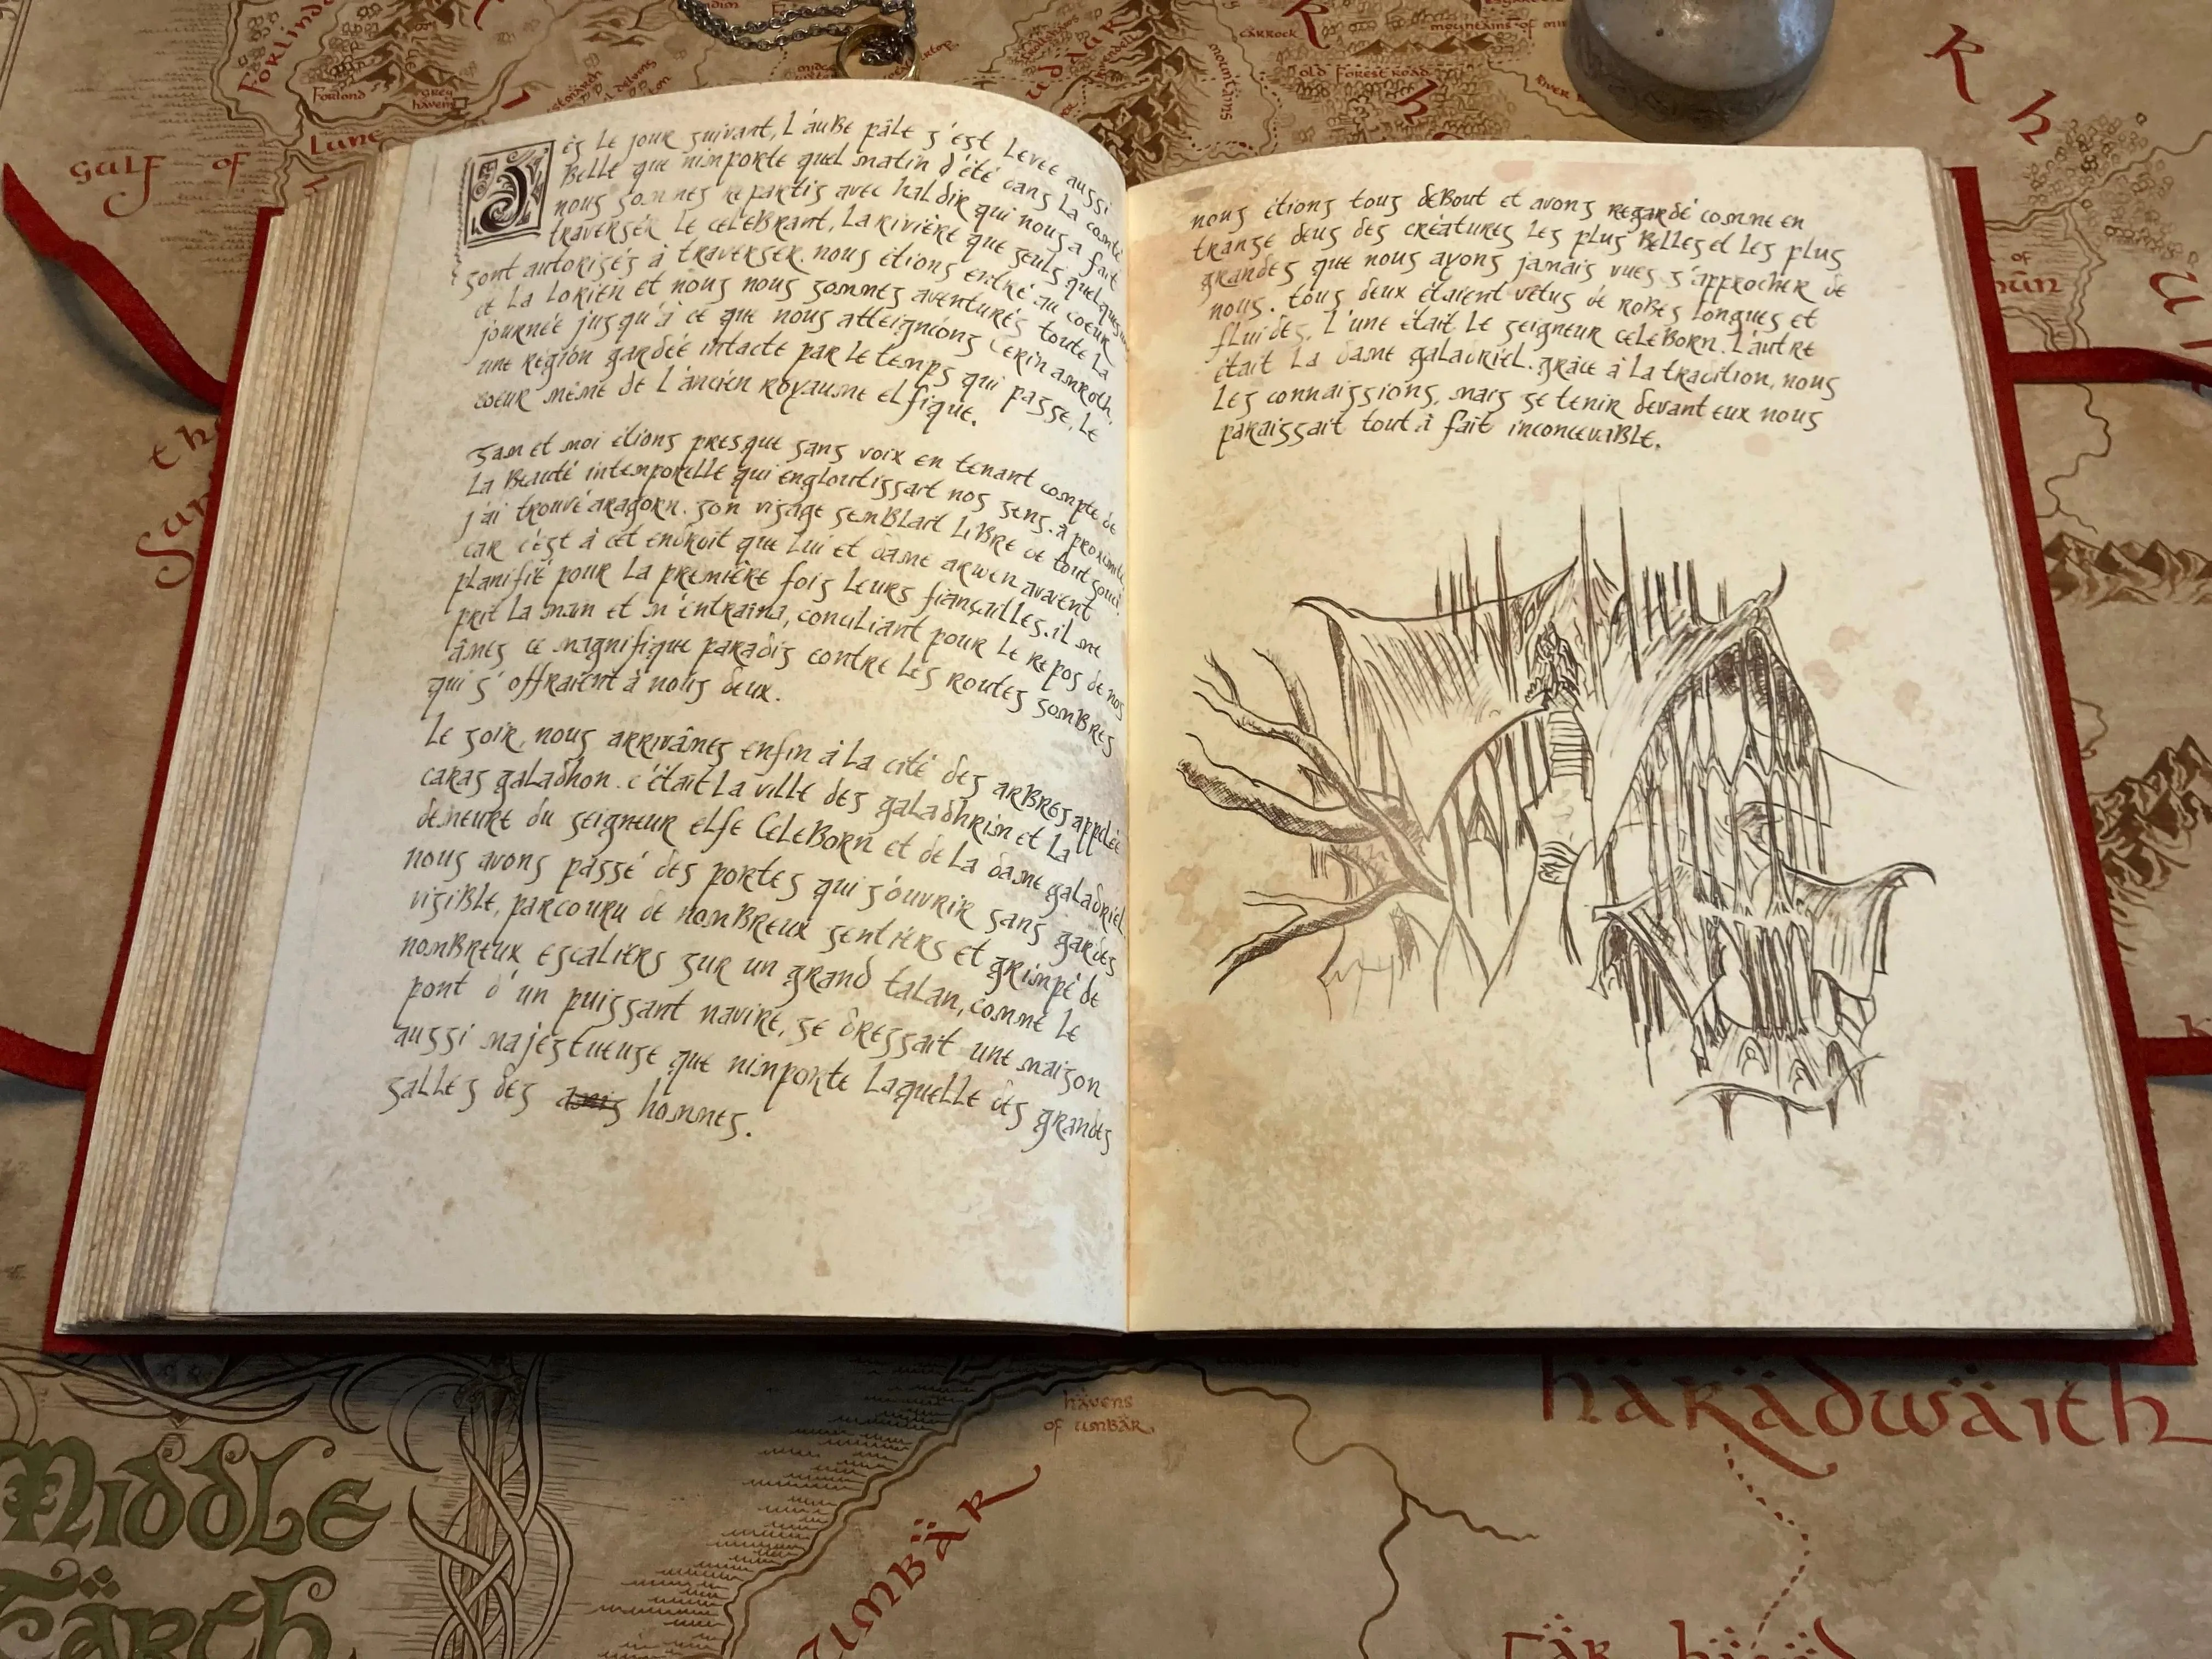 Gulf of Lune
Forlindon
Forlond
Grey Havens
Carrock
Old Forest Road
Dès le jour suivant, l'aube pâle s'est levée aussi
belle que nimporte quel matin d'été dans la comté
nous sommes repartis avec haldir qui nous a fait
traverser le celebrant, la rivière que seuls quelques uns
sont autorisés à traverser. nous étions entré au coeur
de la lorien et nous nous sommes aventurés toute la
journée jusqu'à ce que nous atteignions Cerin amroth,
une région gardée intacte par le temps qui passe, le
coeur même de l'ancien royaume elfique.
sam et moi étions presque sans voix en tenant compte de
la beauté intemporelle qui engloutissait nos sens. à proximité
j'ai trouvé aragorn. son visage semblait libre de tout souci
car c'est à cet endroit que lui et dame arwen avaient
planifié pour la première fois leurs fiançailles. il me
prit la main et m'entraina, conciliant pour le repos de nos
âmes ce magnifique paradis contre les routes sombres
qui s'offraient à nous deux.
Le soir, nous arrivâmes enfin à la cité des arbres appelée
caras galadhon. c'était la ville des galadhrim et la
demeure du seigneur elfe Celeborn et de la dame galadriel
nous avons passé des portes qui s'ouvrir sans gardes
visible, parcouru de nombreux sentiers et grimpé de
nombreux escaliers sur un grand talan, comme le
pont d'un puissant navire, se dressait une maison
aussi majestueuse que nimporte laquelle des grandes
salles des amis hommes.
nous étions tous debout et avons regardé comme en
transe deus des créatures les plus belles et les plus
grandes que nous ayons jamais vues s'approcher de
nous. tous deux étaient vêtus de robes longues et
fluides. L'une était le seigneur celeborn. L'autre
était la dame galadriel. grâce à la tradition, nous
les connaissions, mais se tenir devant eux nous
paraissait tout à fait inconcevable.
havens
of umbär
härädwäith
umbär
Middle
Eärth